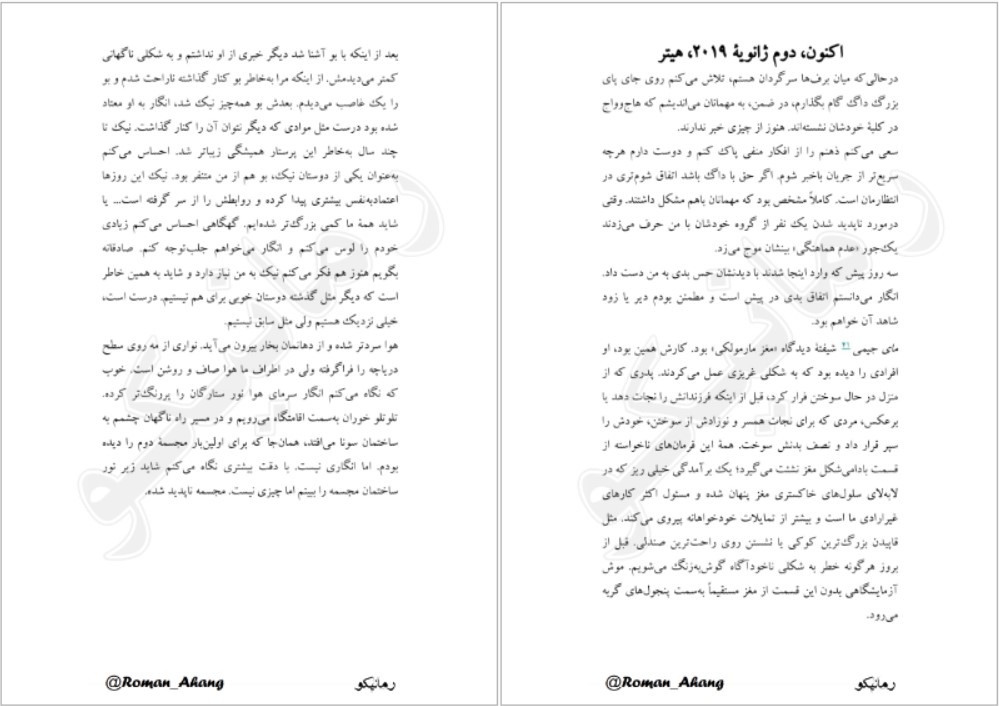 اکنون، دوم ژانویهٔ ۲۰۱۹، هیتر
درحالی‌که میان برف‌ها سرگردان هستم، تلاش می‌کنم روی جای پای
بزرگ داگ گام بگذارم، در ضمن، به مهمانان می‌اندیشم که هاج‌وواج
در کلبهٔ خودشان نشسته‌اند. هنوز از چیزی خبر ندارند.
سعی می‌کنم ذهنم را از افکار منفی پاک کنم و دوست دارم هرچه
سریع‌تر از جریان باخبر شوم. اگر حق با داگ باشد اتفاق شوم‌تری در
انتظارمان است. کاملاً مشخص بود که مهمانان باهم مشکل داشتند. وقتی
درمورد ناپدید شدن یک نفر از گروه خودشان با من حرف می‌زدند
یک‌جور «عدم هماهنگی» بینشان موج می‌زد.
سه روز پیش که وارد اینجا شدند با دیدنشان حس بدی به من دست داد.
انگار می‌دانستم اتفاق بدی در پیش است و مطمئن بودم دیر یا زود
شاهد آن خواهم بود.
مای جیمی ۲۱ شیفتهٔ دیدگاه «مغز مارمولکی» بود. کارش همین بود، او
افرادی را دیده بود که به شکلی غریزی عمل می‌کردند. پدری که از
منزل در حال سوختن فرار کرد، قبل از اینکه فرزندانش را نجات دهد یا
برعکس، مردی که برای نجات همسر و نوزادش از سوختن، خودش را
سپر قرار داد و نصف بدنش سوخت. همهٔ این فرمان‌های ناخواسته از
قسمت بادامی‌شکل مغز نشئت می‌گیرد؛ یک برآمدگی خیلی ریز که در
لابه‌لای سلول‌های خاکستری مغز پنهان شده و مسئول اکثر کارهای
غیرارادی ما است و بیشتر از تمایلات خودخواهانه پیروی می‌کند. مثل
قاپیدن بزرگ‌ترین کوکی یا نشستن روی راحت‌ترین صندلی. قبل از
بروز هرگونه خطر به شکلی ناخودآگاه گوش‌به‌زنگ می‌شویم. موش
آزمایشگاهی بدون این قسمت از مغز مستقیماً به‌سمت پنجول‌های گربه
می‌رود.
@Roman_Ahang رمانیکو
بعد از اینکه با بو آشنا شد دیگر خبری از او نداشتم و به شکلی ناگهانی
کمتر می‌دیدمش. از اینکه مرا به‌خاطر بو کنار گذاشته ناراحت شدم و بو
را یک غاصب می‌دیدم. بعدش بو همه‌چیز نیک شد، انگار به او معتاد
شده بود درست مثل موادی که دیگر نتوان آن را کنار گذاشت. نیک تا
چند سال به‌خاطر این پرستار همیشگی زیباتر شد. احساس می‌کنم
به‌عنوان یکی از دوستان نیک، بو هم از من متنفر بود. نیک این روزها
اعتمادبه‌نفس بیشتری پیدا کرده و روابطش را از سر گرفته است... یا
شاید همهٔ ما کمی بزرگ‌تر شده‌ایم. گهگاهی احساس می‌کنم زیادی
خودم را لوس می‌کنم و انگار می‌خواهم جلب‌توجه کنم. صادقانه
بگویم هنوز هم فکر می‌کنم نیک به من نیاز دارد و شاید به همین خاطر
است که دیگر مثل گذشته دوستان خوبی برای هم نیستیم. درست است،
خیلی نزدیک هستیم ولی مثل سابق نیستیم.
هوا سردتر شده و از دهانمان بخار بیرون می‌آید. نواری از مه روی سطح
دریاچه را فراگرفته ولی در اطراف ما هوا صاف و روشن است. خوب
که نگاه می‌کنم انگار سرمای هوا نور ستارگان را پررنگ‌تر کرده.
تلوتلو خوران به‌سمت اقامتگاه می‌رویم و در مسیر راه ناگهان چشمم به
ساختمان سونا می‌افتد، همان‌جا که برای اولین‌بار مجسمهٔ دوم را دیده
بودم. اما انگاری نیست. با دقت بیشتری نگاه می‌کنم شاید زیر نور
ساختمان مجسمه را ببینم اما چیزی نیست. مجسمه ناپدید شده.
@Roman_Ahang رمانیکو